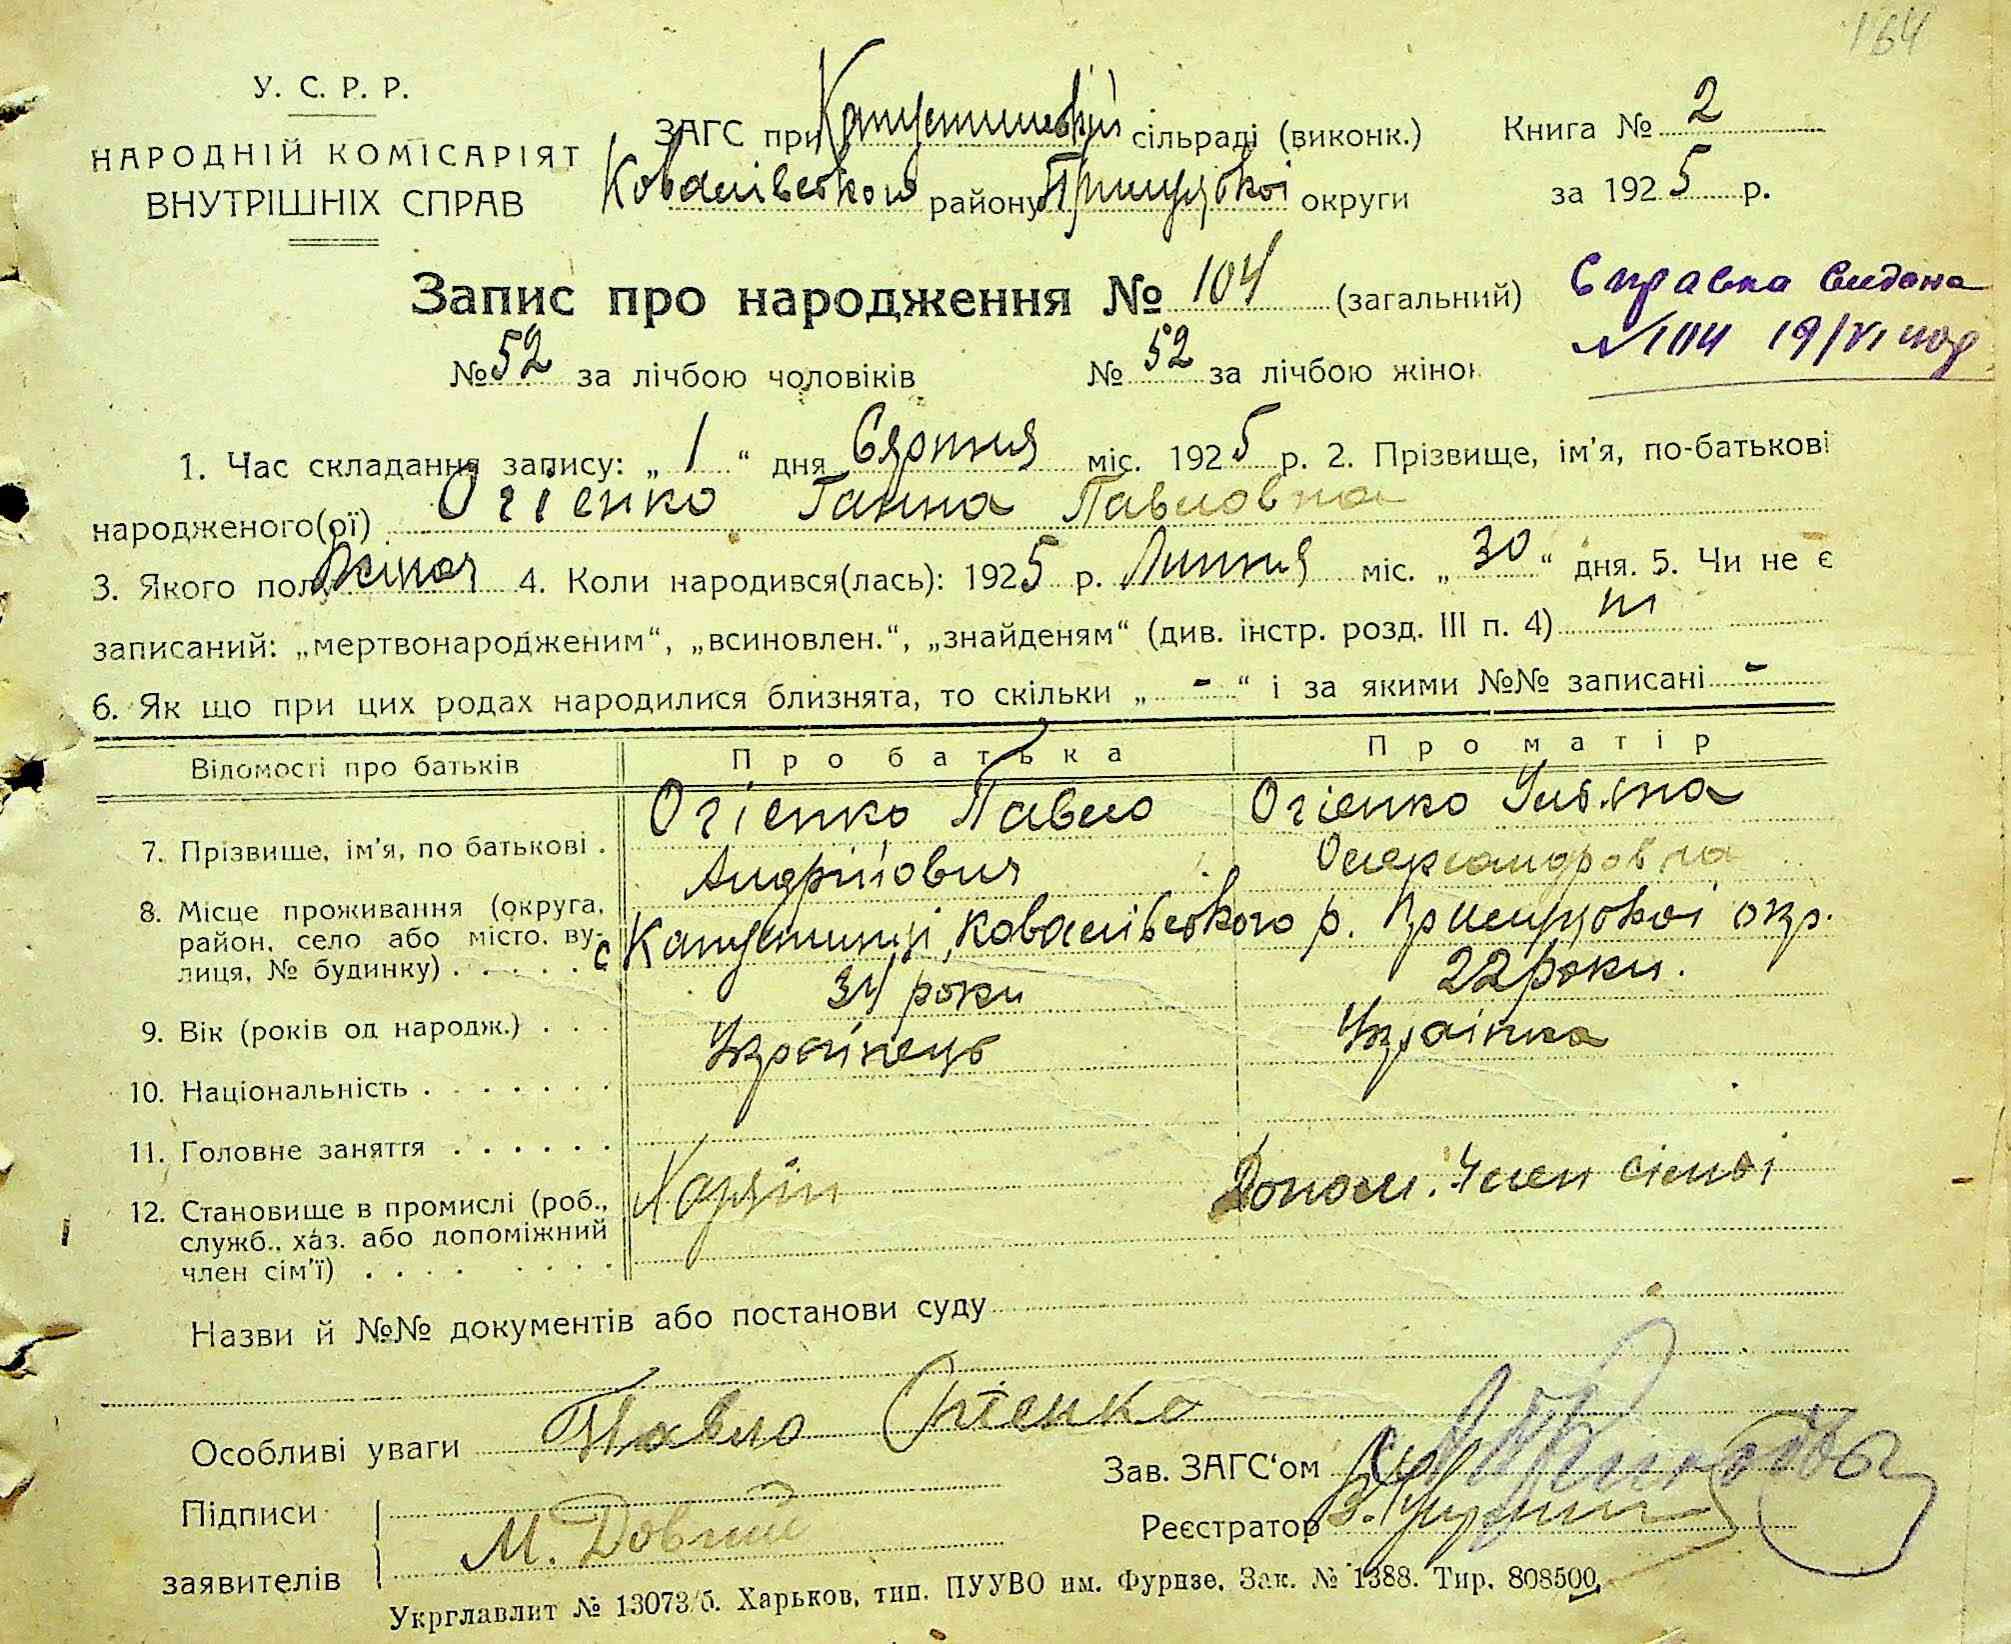 164
У. С. Р. Р.
НАРОДНІЙ КОМІСАРІЯТ
ВНУТРІШНІХ СПРАВ
ЗАГС при Капустинській сільраді (виконк.)
Ковалівського району Прилуцької округи
Книга № 2
за 1925 р.
Запис про народження № 104 (загальний)
Справка видана
№ 104 19/VI
№ 52 за лічбою чоловіків № 52 за лічбою жінок
1. Час складання запису: „ 1 “ дня Серпня міс. 1925 р. 2. Прізвище, ім'я, по-батькові
народженого(ої) Огієнко Ганна Павловна
3. Якого полу жіноч 4. Коли народився(лась): 1925 р. Липня міс. „ 30 “ дня. 5. Чи не є
записаний: „мертвонародженим“, „всиновлен.“, „знайденям“ (див. інстр. розд. III п. 4) ні
6. Як що при цих родах народилися близнята, то скільки „ - “ і за якими №№ записані -
Відомості про батьків Про батька Про матір
7. Прізвище, ім'я, по батькові . Огієнко Павло Огієнко Улъяна
Андрійович Олександровна
8. Місце проживання (округа,
район, село або місто, ву-
лиця, № будинку) . . . . . с Капустинці, Ковалівського р. Прилуцької окр.
9. Вік (років од народж.) . . . 34 роки 22 роки.
10. Національність . . . . . . . Українець Українка
11. Головне заняття . . . . . .
12. Становище в промислі (роб.,
служб., хаз. або допоміжний
член сім'ї) . . . . . . . . Хазяїн Допом. Член сімьї
Назви й №№ документів або постанови суду
Особливі уваги Павло Огієнко
Зав. ЗАГС'ом
Підписи
Реєстратор
М. Довгий
заявителів
Укрглавлит № 13073/б. Харьков, тип. ПУУВО им. Фрунзе. Зак. № 1388. Тир. 808500.